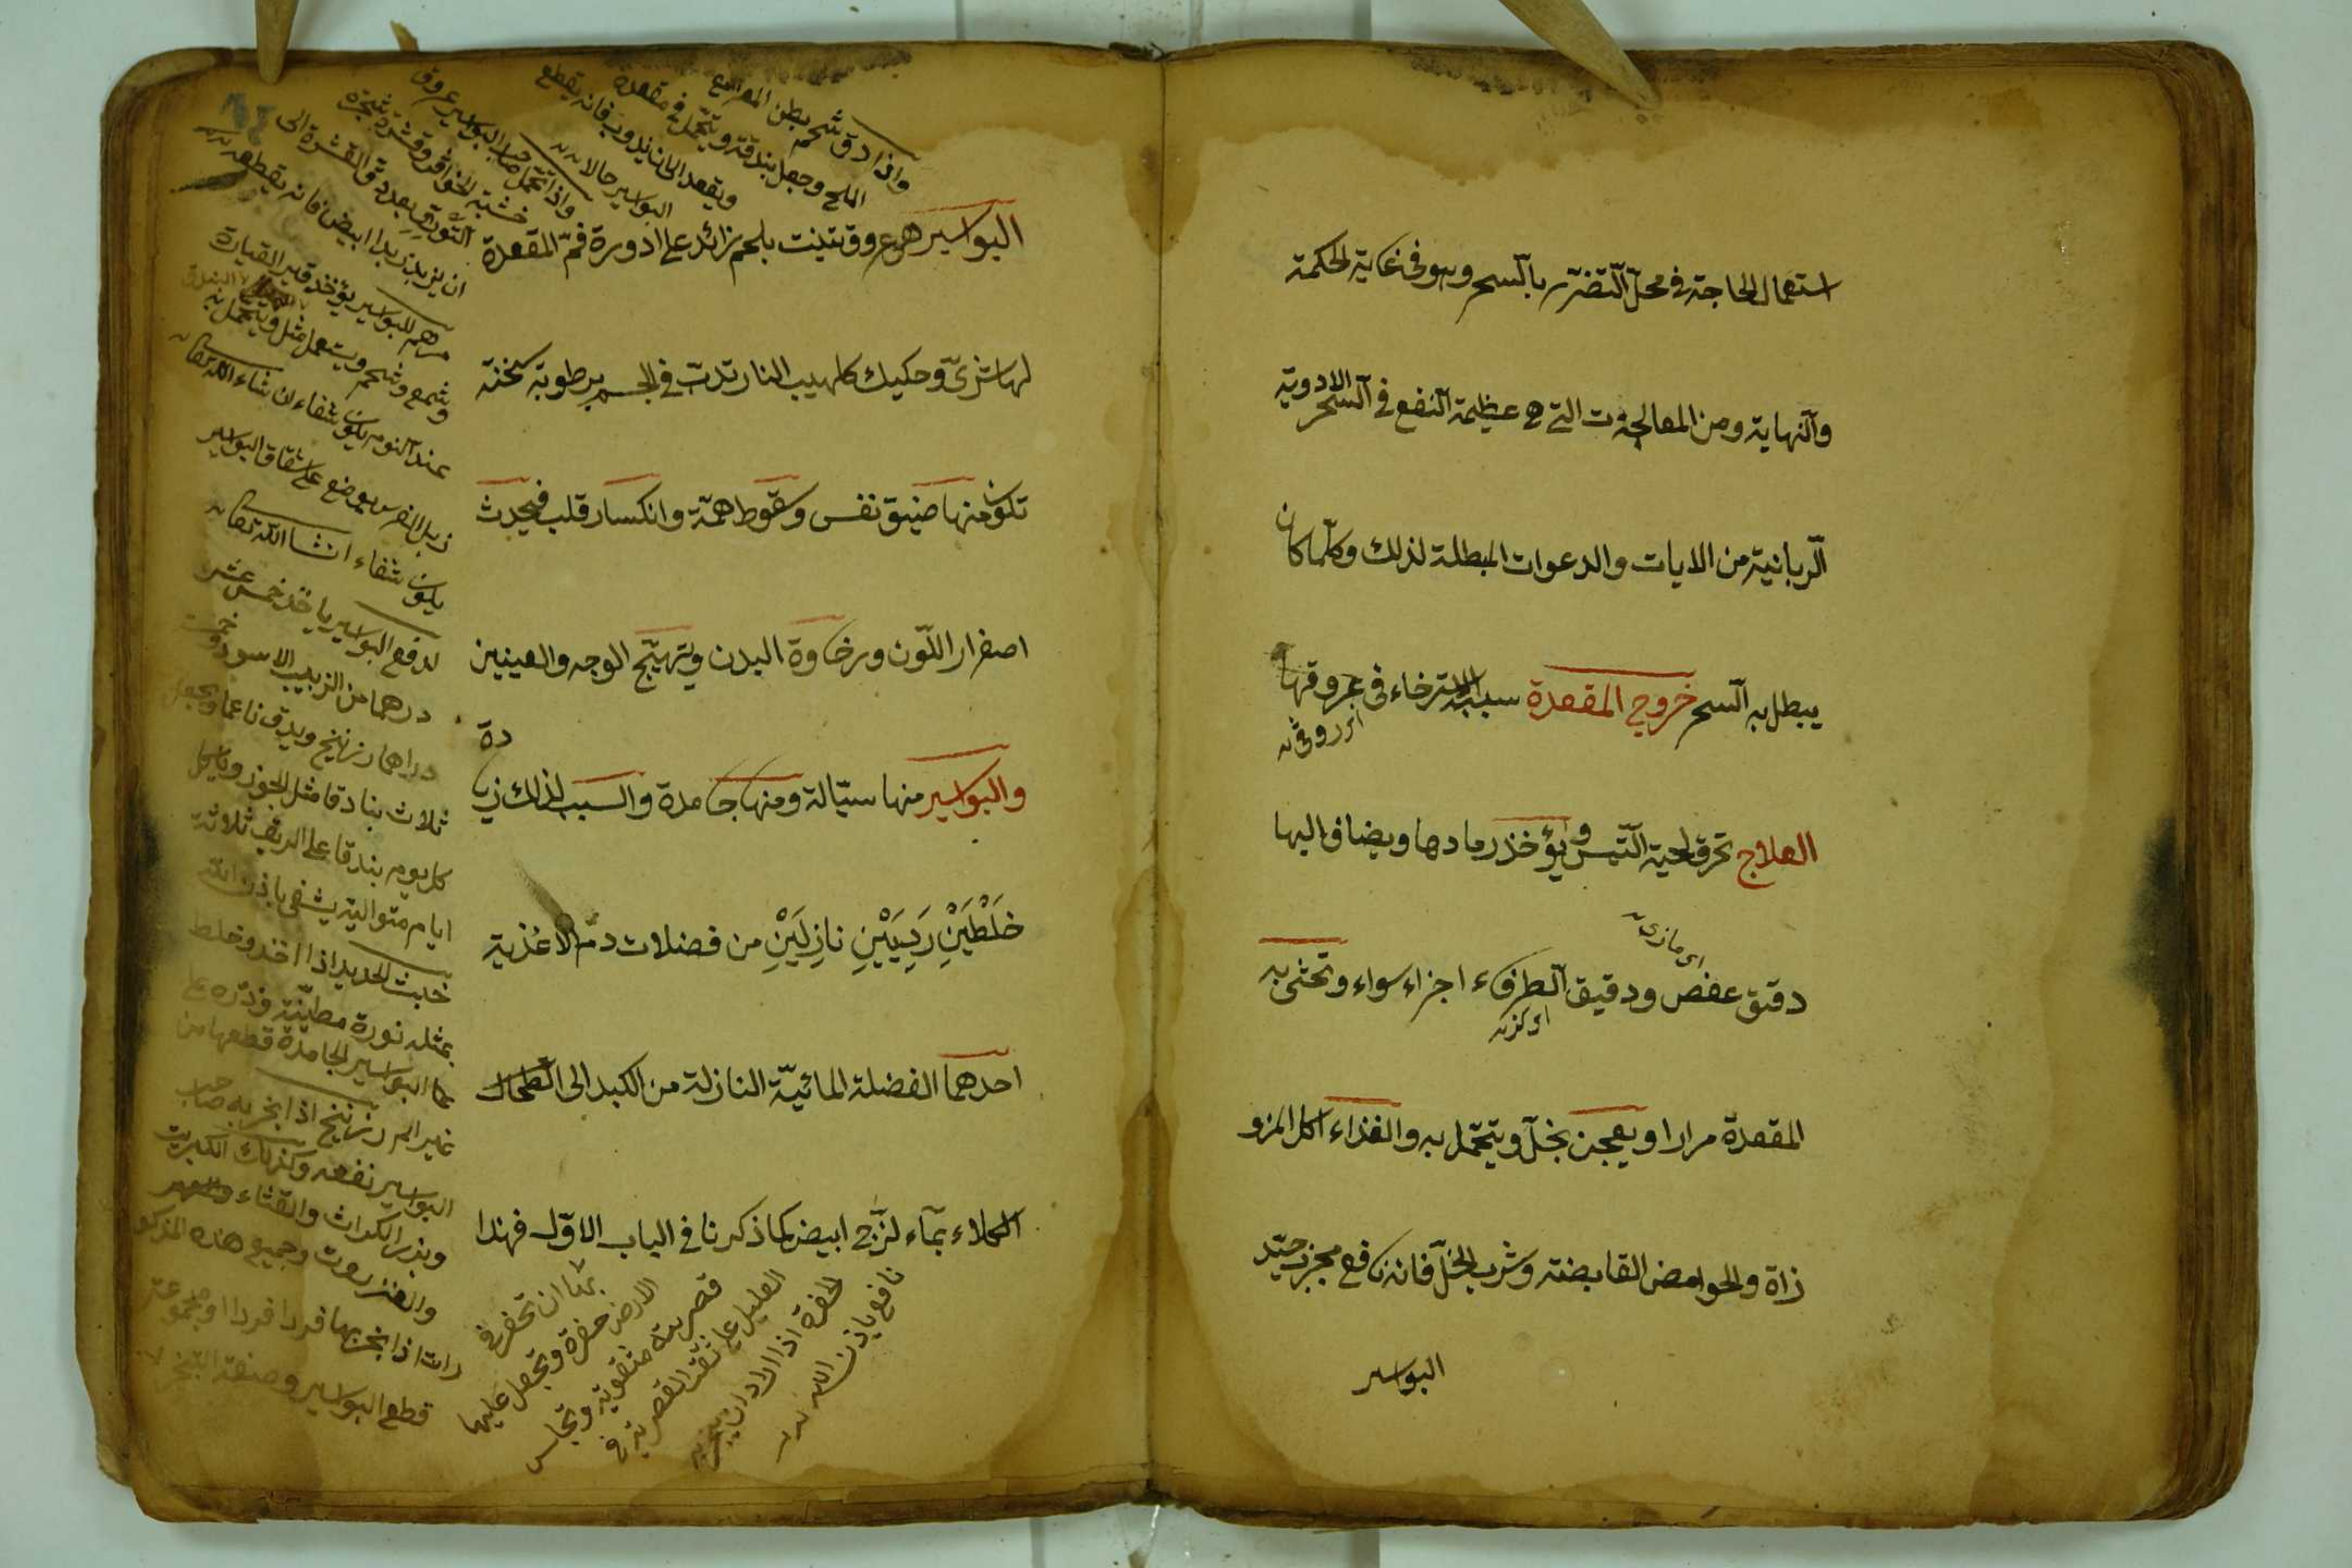 استعمال الحاجة في محل التضرر بالسحر وهو في غاية الحكمة
والنهاية ومن المعالجات التي هي عظيمة النفع في السحر الادوية
الربانية من الايات والدعوات المبطلة لذلك وكلما كان
يبطل به السحر خروج المقعدة سببه الاسترخاء في عروقها
العلاج تحرق لحية التيس ويؤخذ رمادها ويضاف اليها
اى مازى
دقيق عفص ودقيق الطرفاء اجزاء سواء وتحشى به
المقعدة مرارا او يعجن بخل ويتحمل به والغذاء اكل المزو
زاة والحوامض القابضة وشرب الخل فانه نافع مجرب جيد
البواسير
البواسير هي عروق تنبت بلحم زائد على ادورة فم المقعدة
لها شرى وحكيك كلهيب النار تدب في الجسم برطوبة سخنة
تكون منها ضيق نفس وسقوط همة وانكسار قلب فيحدث
اصفرار اللون ورخاوة البدن وتهيج الوجه والعينين
والبواسير منها سيالة ومنها جامدة والسبب لذلك زيا
دة
خلطين رديين نازلين من فضلات دم الاغذية
احدهما الفضلة المائية النازلة من الكبد الى الطحال
الكلاء بماء لزج ابيض كما ذكرنا في الباب الاول فهذا
واذا دق شحم بطن المعز مع
الملح وجعل بندقة ويتحمل في مقعده
ويقعد الى ان يذوب فانه يقطع
البواسير حالا
واذا تحمل صاحب البواسير عروق
مرهم للبواسير يؤخذ قير القيارة
وشمع وشحم ويستعمل مثل ويتحمل به
عند النوم يكون شفاء ان شاء الله تعالى
زبل الفرس يوضع على شقاق البواسير
يكون شفاء انشا الله تعالى
لدفع البواسير ياخذ خمس عشر
درهما من الزبيب الاسود وخمسة
دراهما زرنيخ ويدق ناعما ويجعل
ثلاث بنادقا مثل الجوز وياكل
كل يوم بندقا على الريق ثلاثة
ايام متوالية يشفى باذن الله
خبث الحديد اذا اخذ وخلط
بمثله نورة مطينة وذره على
البواسير الجامدة قطعها من
غير الم زرنيخ اذا بخر به صاحب
البواسير نفعه وكذلك الكبريت
وبذر الكراث والقثاء
والعنزروت وجميع هذه المذكو
رات اذا بخر بها فردا فردا او مجموعة
قطع البواسير وصفة التبخر
بها ان تحفر في
الارض حفرة وتجعل عليها
قصرية مثقوبة ويجلس
العليل على ثقب القصرية في
نافع باذن الله